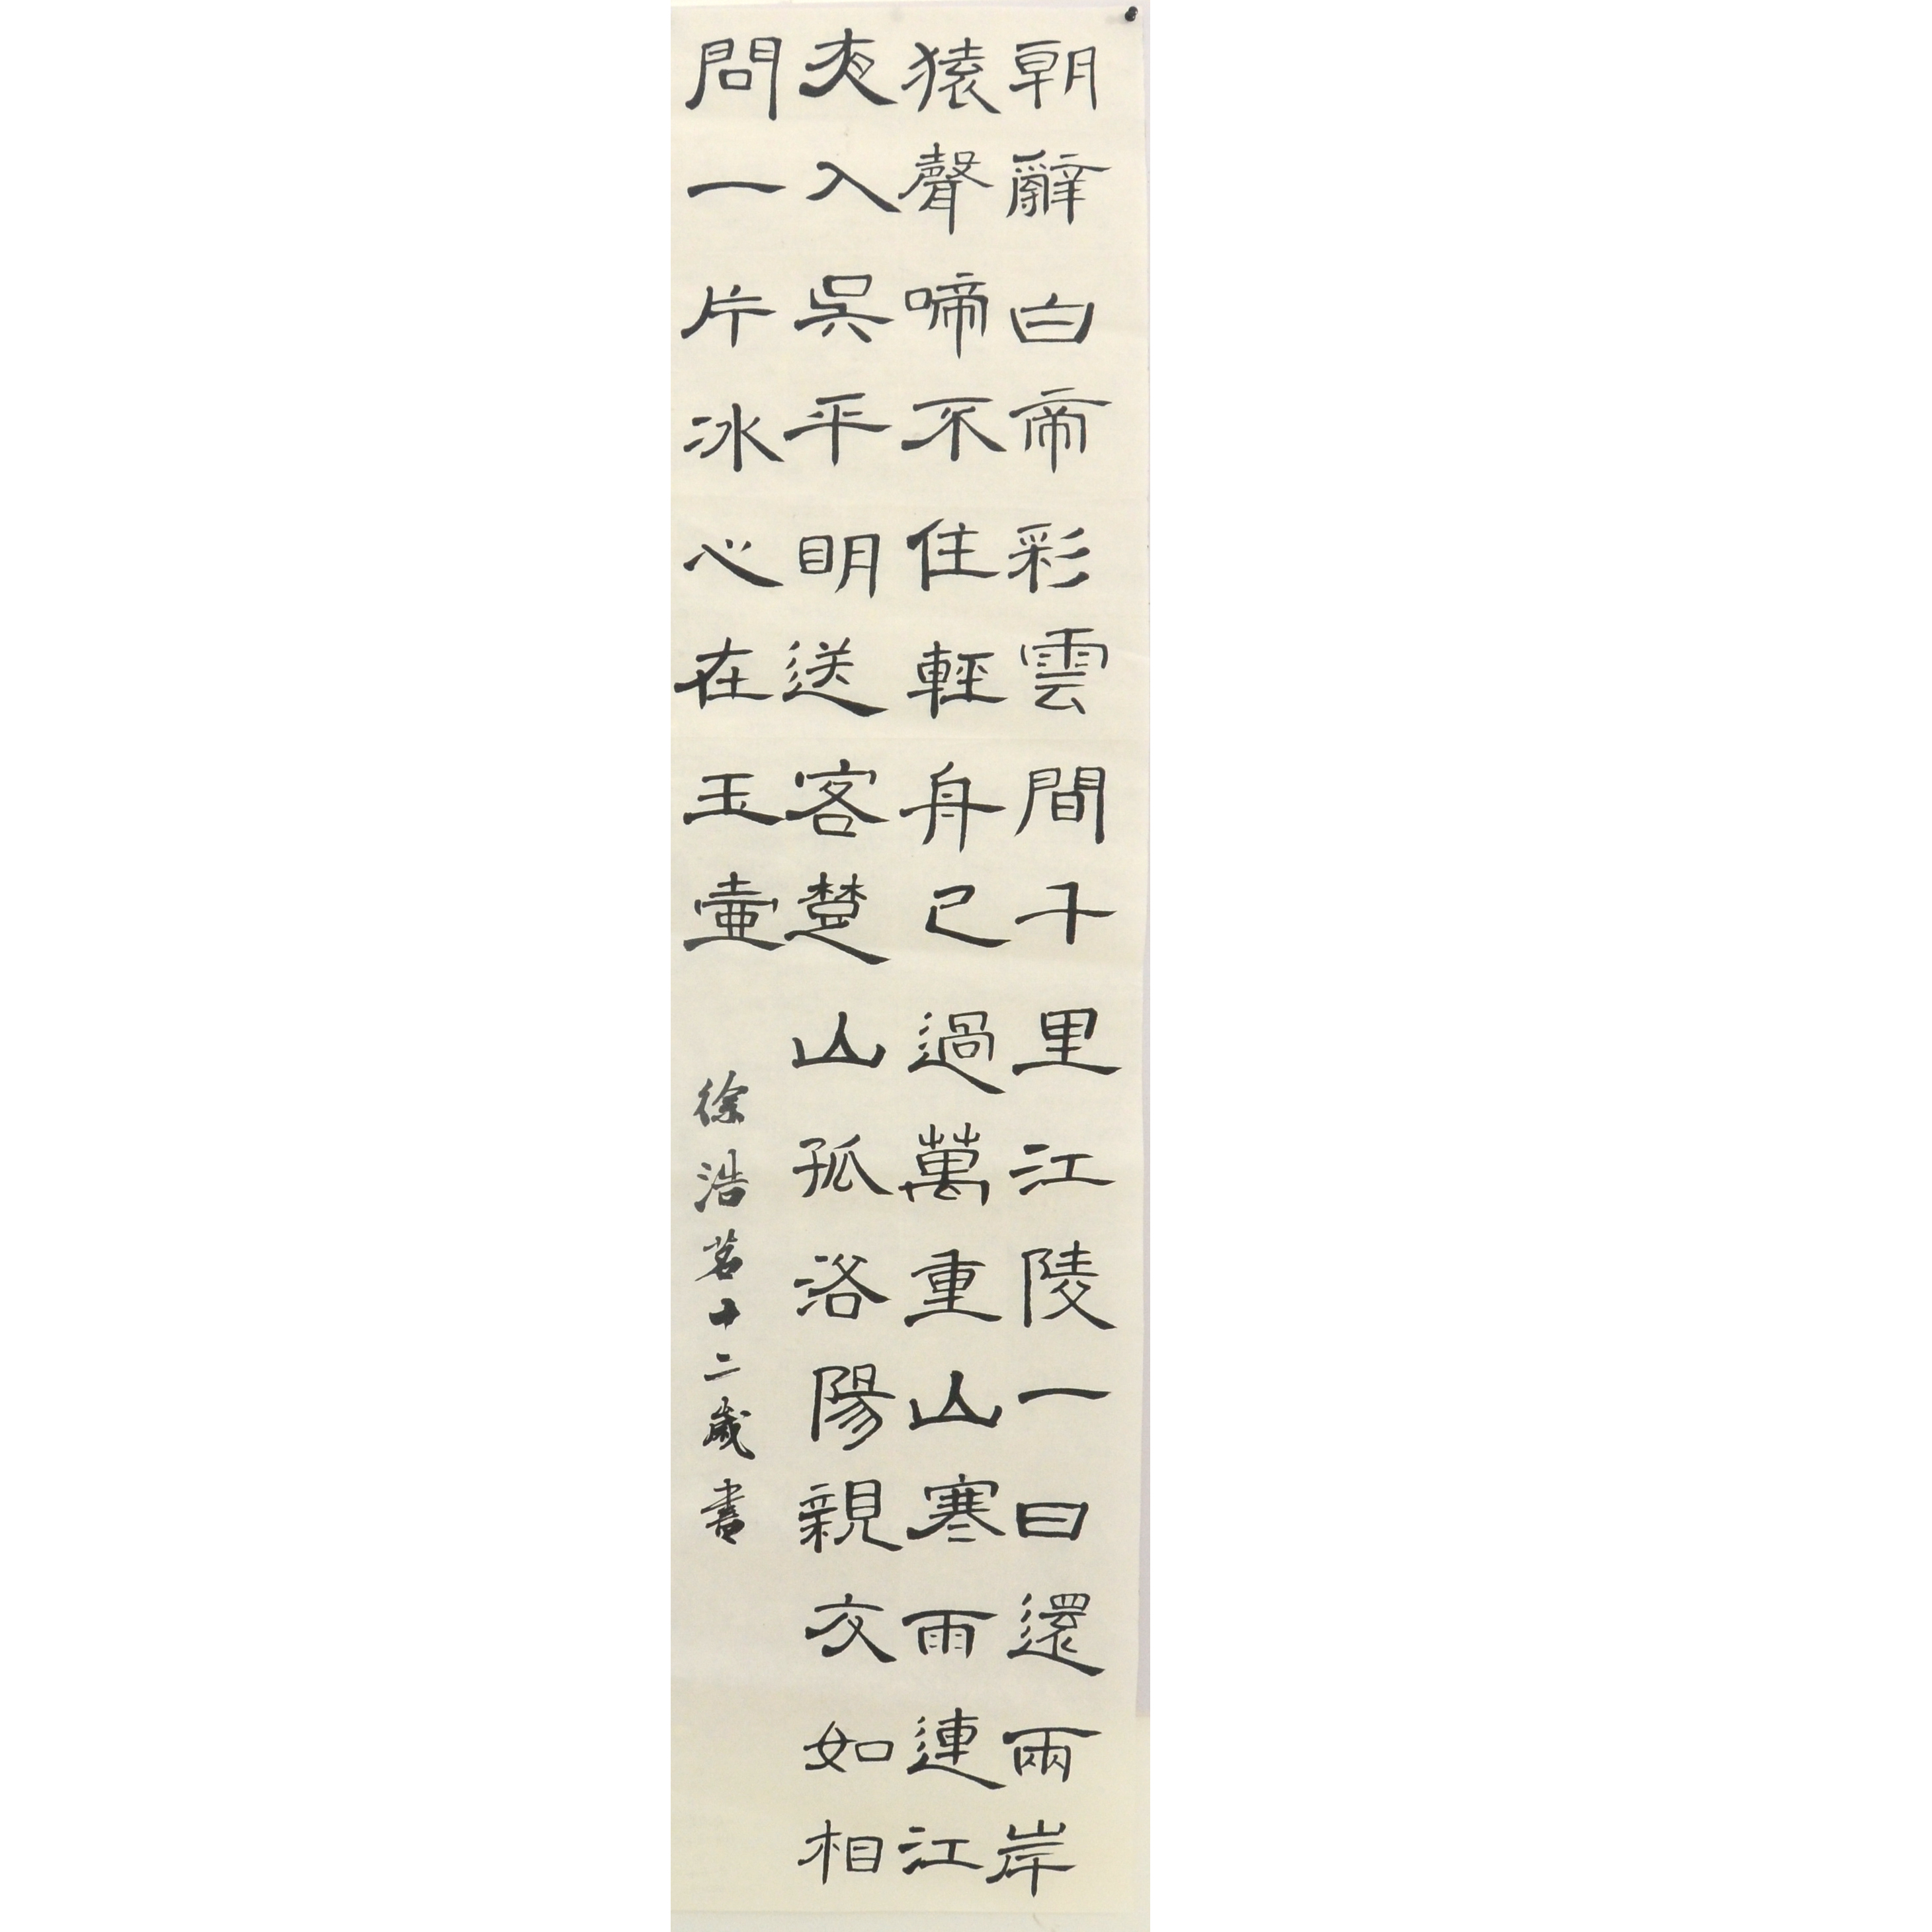 朝辭白帝彩雲間千里江陵一日還兩岸
猿聲啼不住輕舟已過萬重山寒雨連江
夜入吳平明送客楚山孤洛陽親友如相
問一片冰心在玉壺
徐浩茗十二歲書